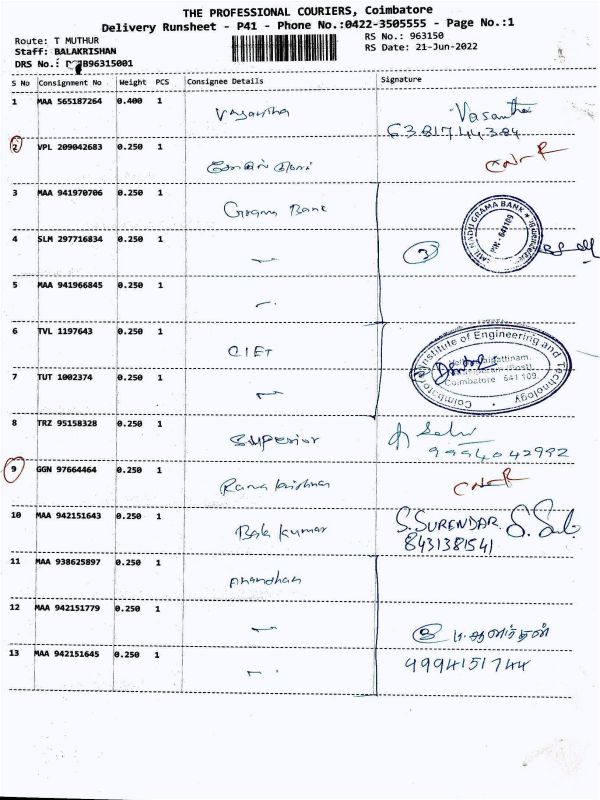 THE PROFESSIONAL COURIERS, Coimbatore
Delivery Runsheet - P41 - Phone No.:0422-3505555 - Page No.:1
Route: T MUTHUR
RS No.: 963150
Staff: BALAKRISHAN
RS Date: 21-Jun-2022
DRS No.: B96315001
S No Consignment No Weight PCS Consignee Details Signature
1 MAA 565187264 0.400 1 Vasantha Vasantha
6381744384
2 VPL 209042683 0.250 1
3 MAA 941970706 0.250 1 Grama Bank
TAMIL NADU GRAMA BANK
PIN - 641109
4 SLM 297716834 0.250 1 3
5 MAA 941966845 0.250 1
6 TVL 1197643 0.250 1 CIET
Coimbatore Institute of Engineering and Technology
Coimbatore 641 109
7 TUT 1002374 0.250 1
8 TRZ 95158328 0.250 1 Superior Selvi
9994042992
9 GGN 97664464 0.250 1 Rama Krishnan
10 MAA 942151643 0.250 1 Bala Kumar S. SURENDAR
8431381541
11 MAA 938625897 0.250 1 Anandhan
12 MAA 942151779 0.250 1 3 ப.ஆனந்தன்
13 MAA 942151645 0.250 1 9994151744